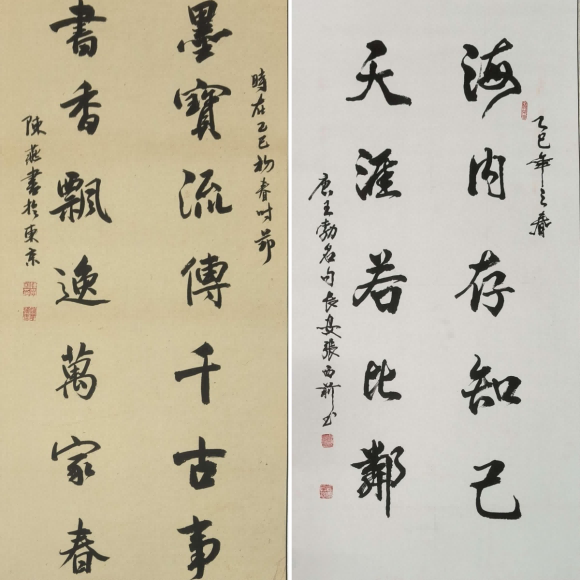 墨寶流傳千古事
書香飄逸萬家春
時在乙巳初春時節
陳燕書於東京
海内存知己
天涯若比鄰
乙巳年之春
唐王勃名句長安張西前書